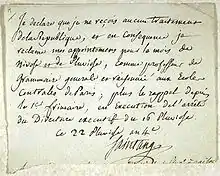 Je declare que je ne reçois aucun traitement
De la Republique, et en Consequence je
reclame mes appointemens pour le mois de
Nivose et de Pluviose, comme professeur de
Grammaire general et raisonnée aux Ecoles
Centrales de Paris; plus le rappel depuis
le 1er frimaire, en execution de l'arreté
du Directoire executif du 16 Pluviose.
ce 22 Pluviose, an 4e.